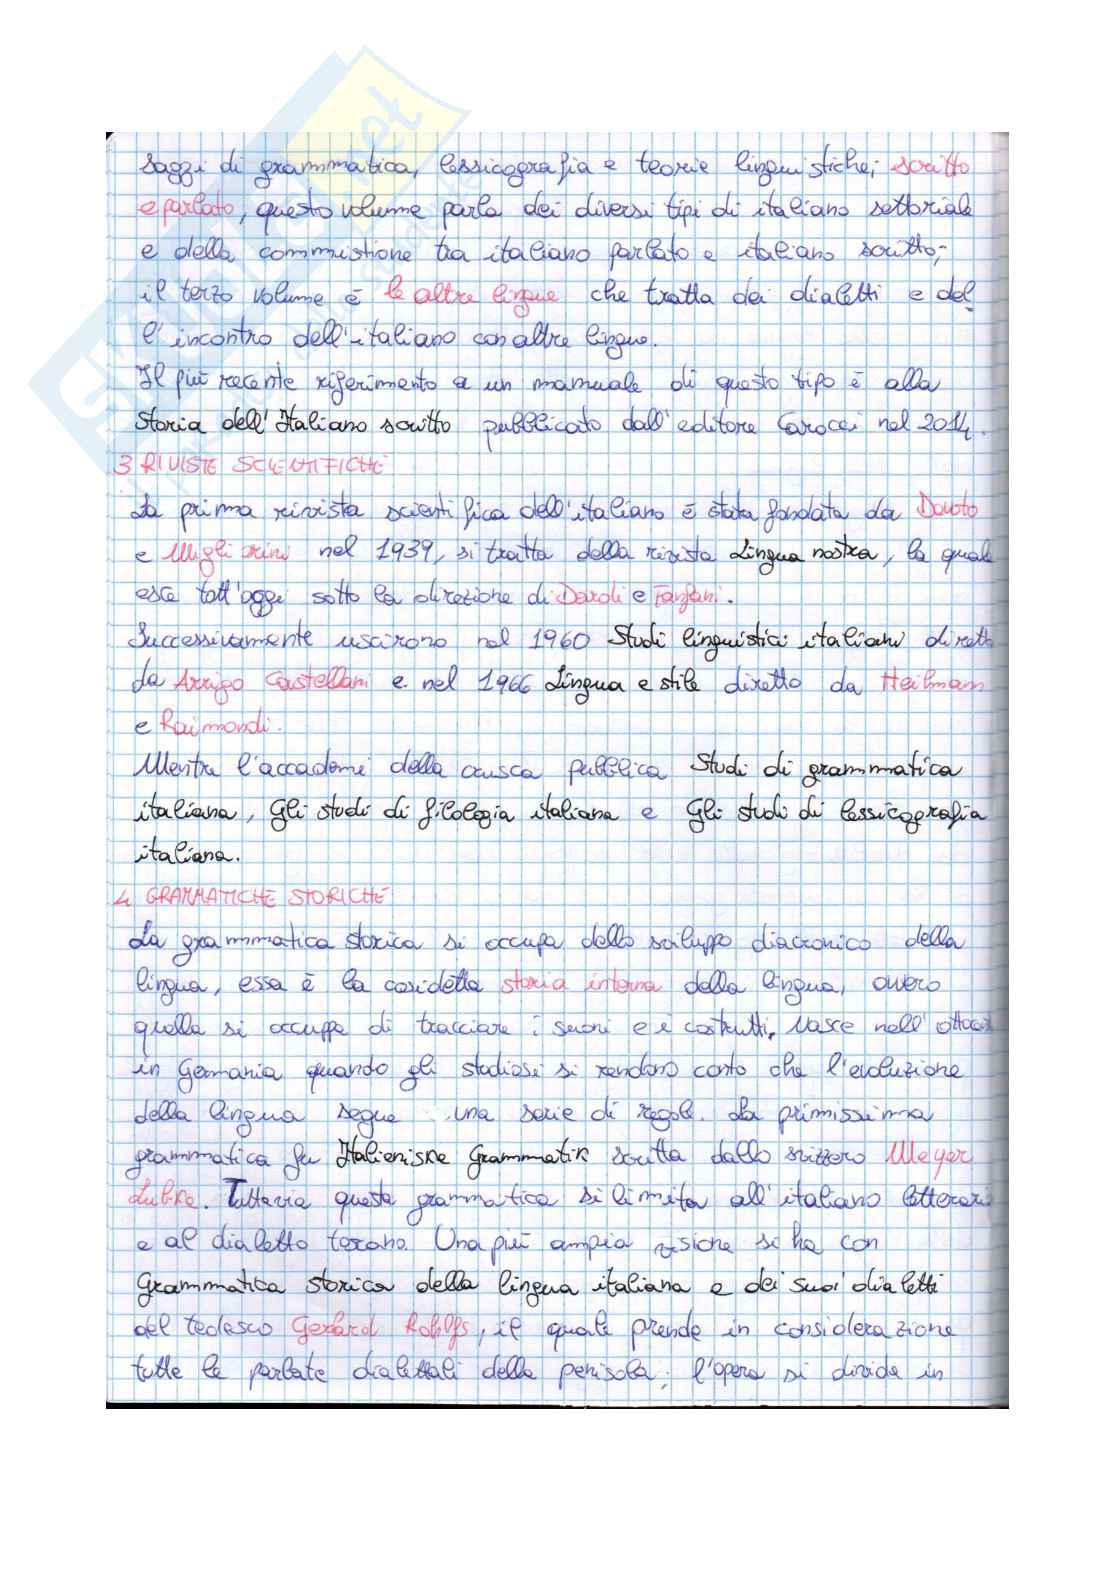 saggi di grammatica, lessicografia e teorie linguistiche; scritto
e parlato, questo volume parla dei diversi tipi di italiano settoriale
e della commistione tra italiano parlato e italiano scritto;
il terzo volume è le altre lingue che tratta dei dialetti e del
l'incontro dell'italiano con altre lingue.
Il più recente riferimento a un manuale di questo tipo è alla
Storia dell'Italiano scritto pubblicato dall'editore Carocci nel 2014.
3 RIVISTE SCIENTIFICHE
La prima rivista scientifica dell'italiano è stata fondata da Devoto
e Migliorini nel 1939, si tratta della rivista Lingua nostra, la quale
esce tutt'oggi sotto la direzione di Dardi e Fanfani.
Successivamente uscirono nel 1960 Studi linguistici italiani diretto
da Arrigo Castellani e nel 1966 Lingua e stile diretto da Heilmann
e Raimondi.
Mentre l'accademi della crusca pubblica Studi di grammatica
italiana, Gli studi di filologia italiana e Gli studi di lessicografia
italiana.
4 GRAMMATICHE STORICHE
La grammatica storica si occupa dello sviluppo diacronico della
lingua, essa è la cosidetta storia interna della lingua, ovvero
quella si occupa di tracciare i suoni e i costrutti. Nasce nell'ottocent
in Germania quando gli studiosi si rendono conto che l'evoluzione
della lingua segue una serie di regole. La primissima
grammatica fu Italieniske Grammatik scritta dallo svizzero Meyer
Lubke. Tuttavia questa grammatica si limita all'italiano letterari
e al dialetto toscano. Una più ampia visione si ha con
Grammatica storica della lingua italiana e dei suoi dialetti
del tedesco Gerhard Rohlfs, il quale prende in considerazione
tutte le parlate dialettali della penisola; l'opera si divide in